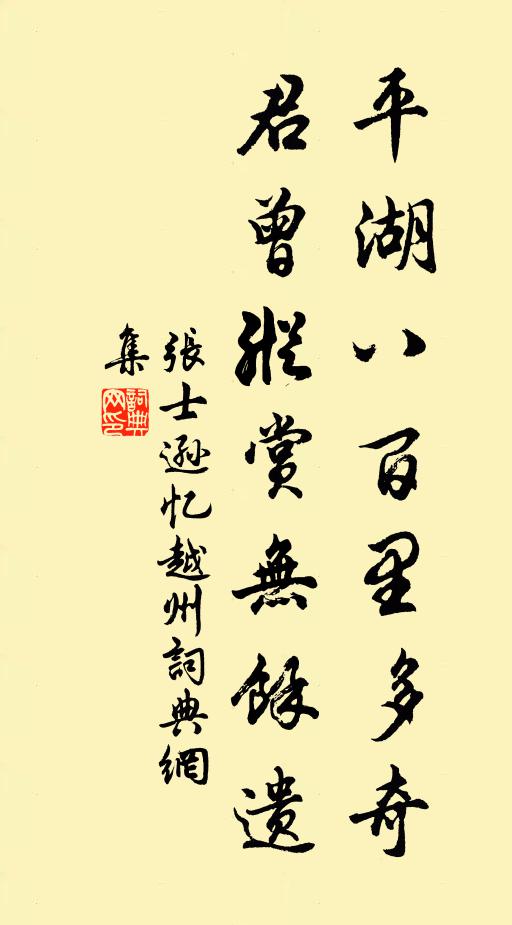 平湖八百里多奇
君曾縱賞無餘遺
張士遜忆越州詞典網
集
詞典网印